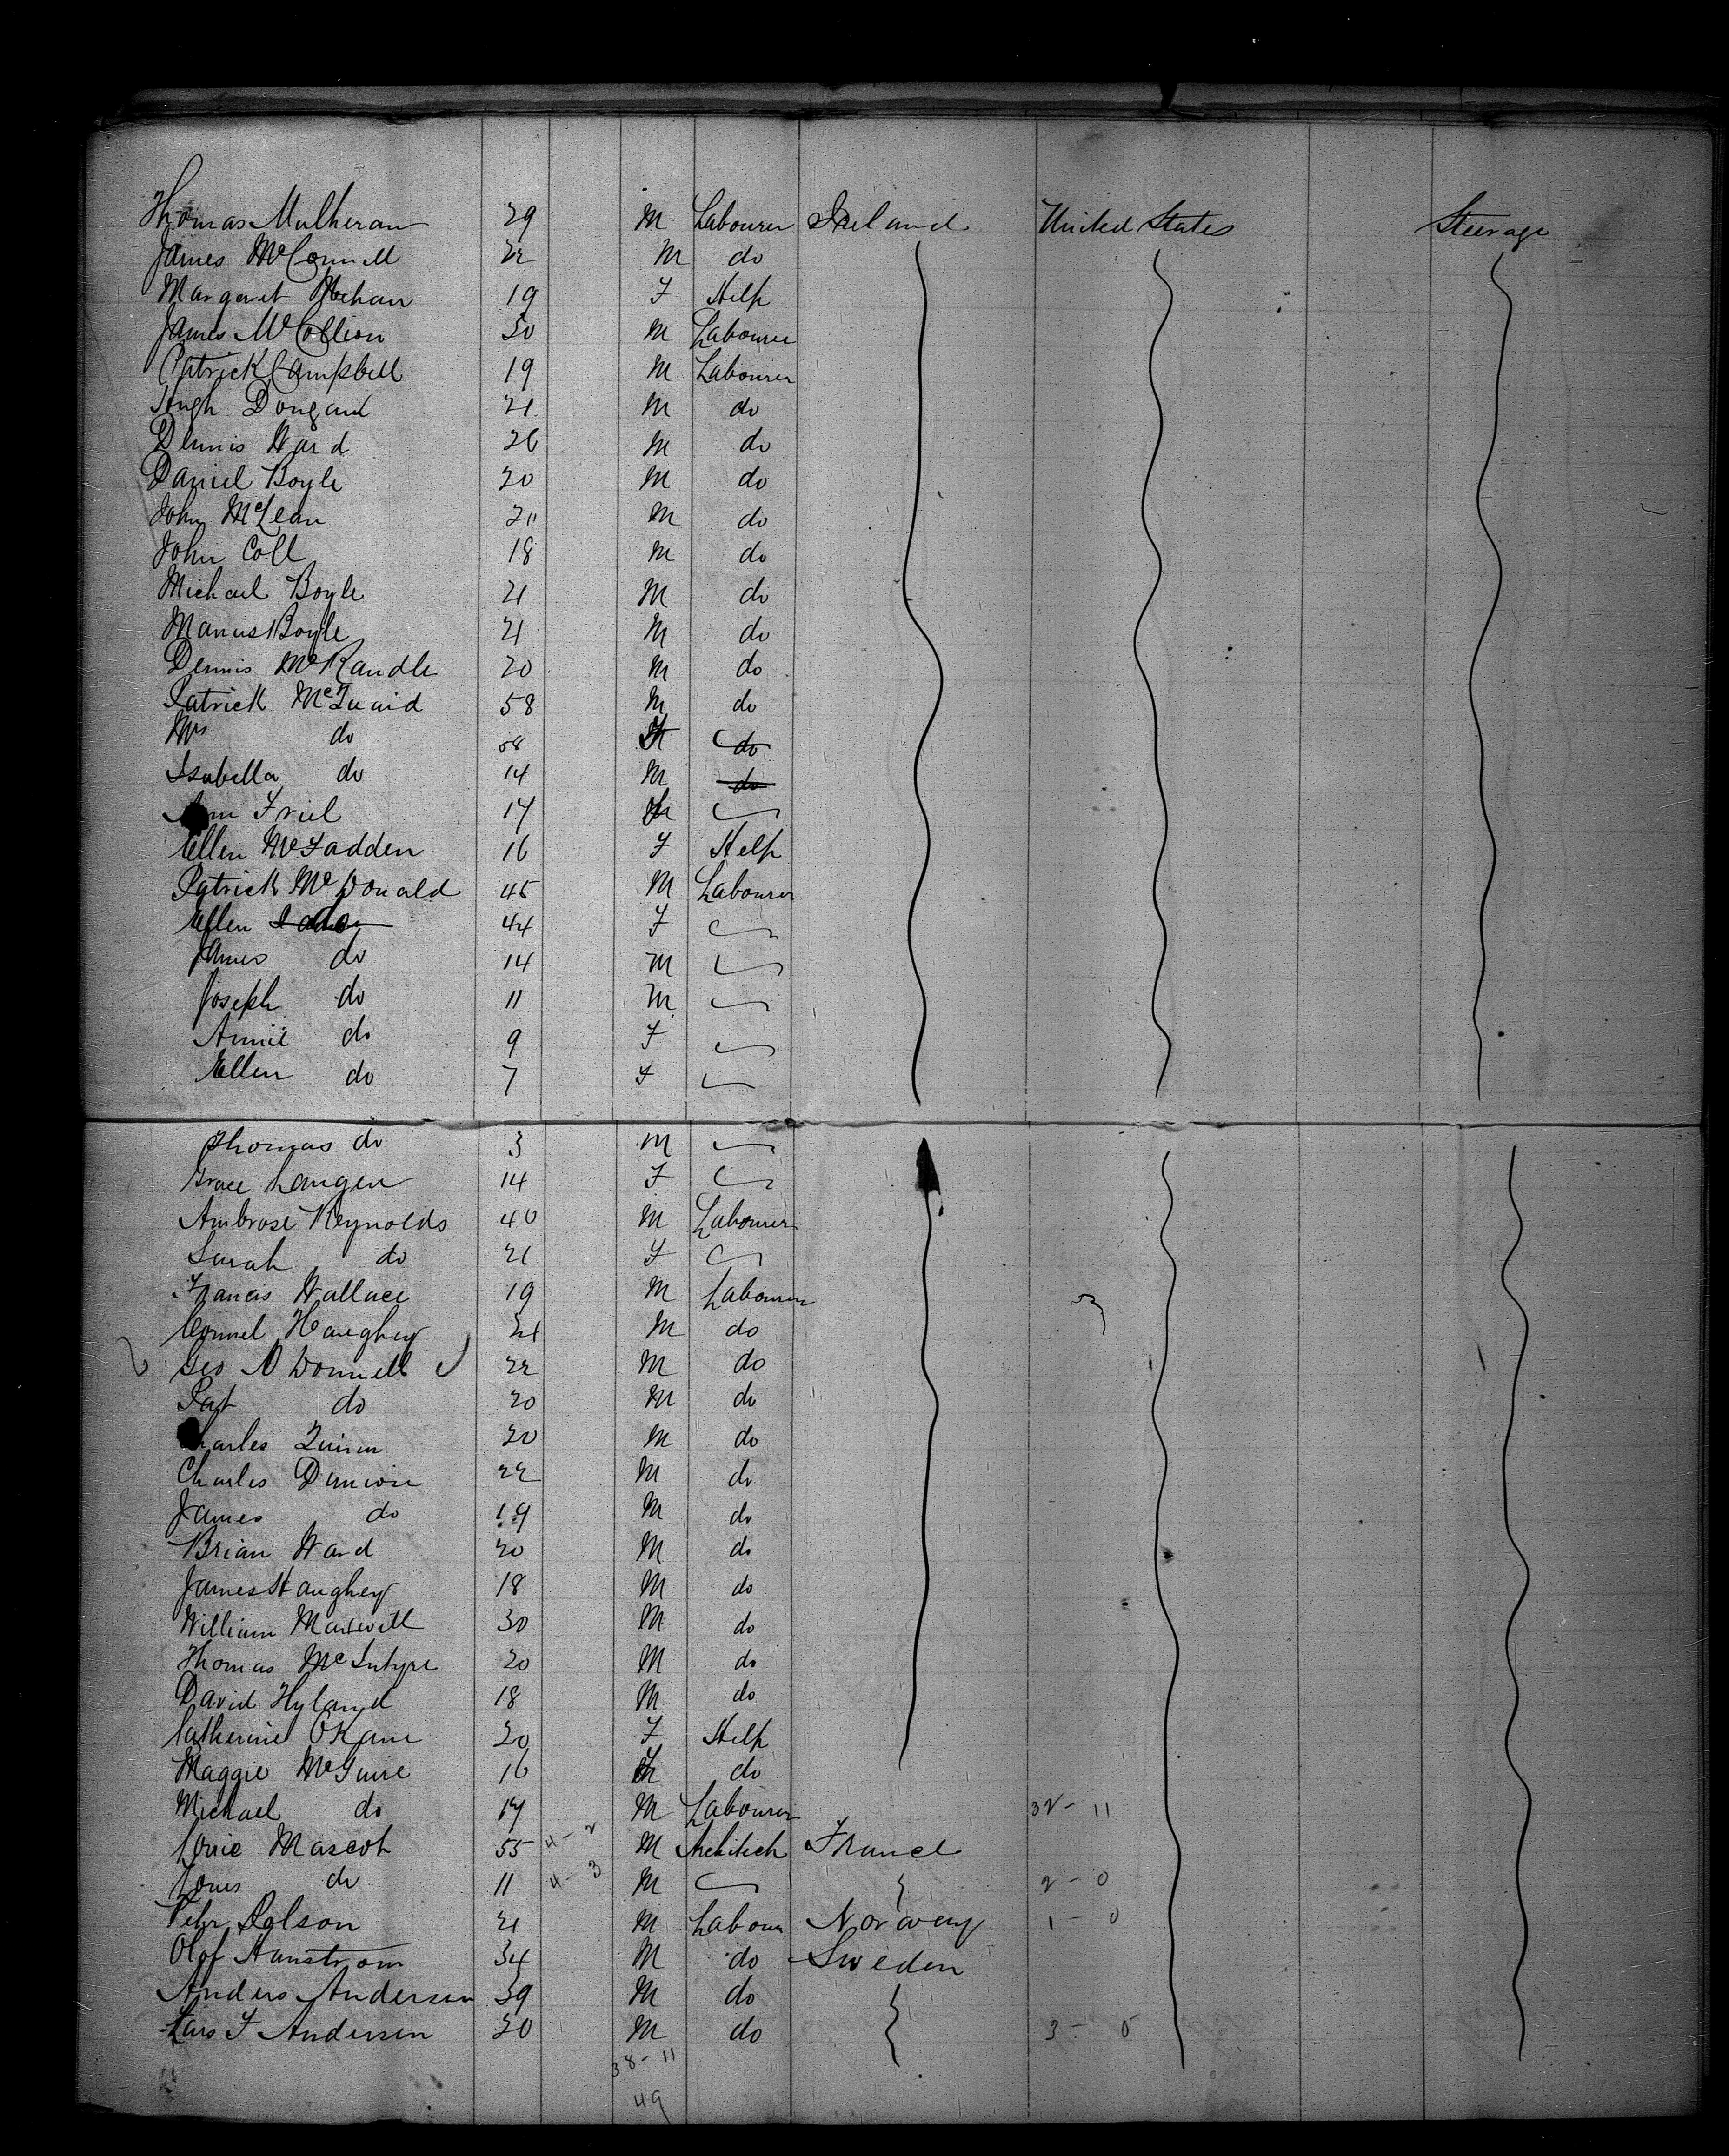 Thomas Mulheran 29 M Labourer Ireland United States Steerage
James McConnell 22 M do
Margaret Mehan 19 F Help
James McCollion 30 M Labourer
Patrick Campbell 19 M Labourer
Hugh Dongand 21 M do
Dennis Ward 26 M do
Daniel Boyle 20 M do
John McLean 20 M do
John Coll 18 M do
Michael Boyle 21 M do
Manus Boyle 21 M do
Dennis McRandle 20 M do
Patrick McQuaid 58 M do
Mrs do 58 F do
Isabella do 14 M do
Ann Friel 17
Ellen McFadden 16 F Help
Patrick McDonald 45 M Labourer
Ellen 44 F
James do 14 M
Joseph do 11 M
Annie do 9 F
Ellen do 7 F
Thomas do 3 M
Grace Langen 14 F
Ambrose Reynolds 40 M Labourer
Sarah do 21 F
Francis Wallace 19 M Labourer
Connel Haughey 21 M do
Geo O Donnell 22 M do
Pat do 20 M do
Charles Quinn 20 M do
Charles Dunion 22 M do
James do 19 M do
Brian Ward 20 M do
James Haughey 18 M do
William Maxwell 30 M do
Thomas McIntyre 20 M do
David Hyland 18 M do
Catherine OKane 20 F Help
Maggie McGuire 16 F do
Michael do 17 M Labourer 32 - 11
Louie Mascot 55 4 - 2 M Architect France
Louis do 11 4 - 3 M 2 - 0
Pehr Polson 21 M Labour Norway 1 - 0
Olof Hanstrom 34 M do Sweden
Anders Andersen 39 M do
Lars F Andersen 20 M do 3 - 0
38 - 11
49